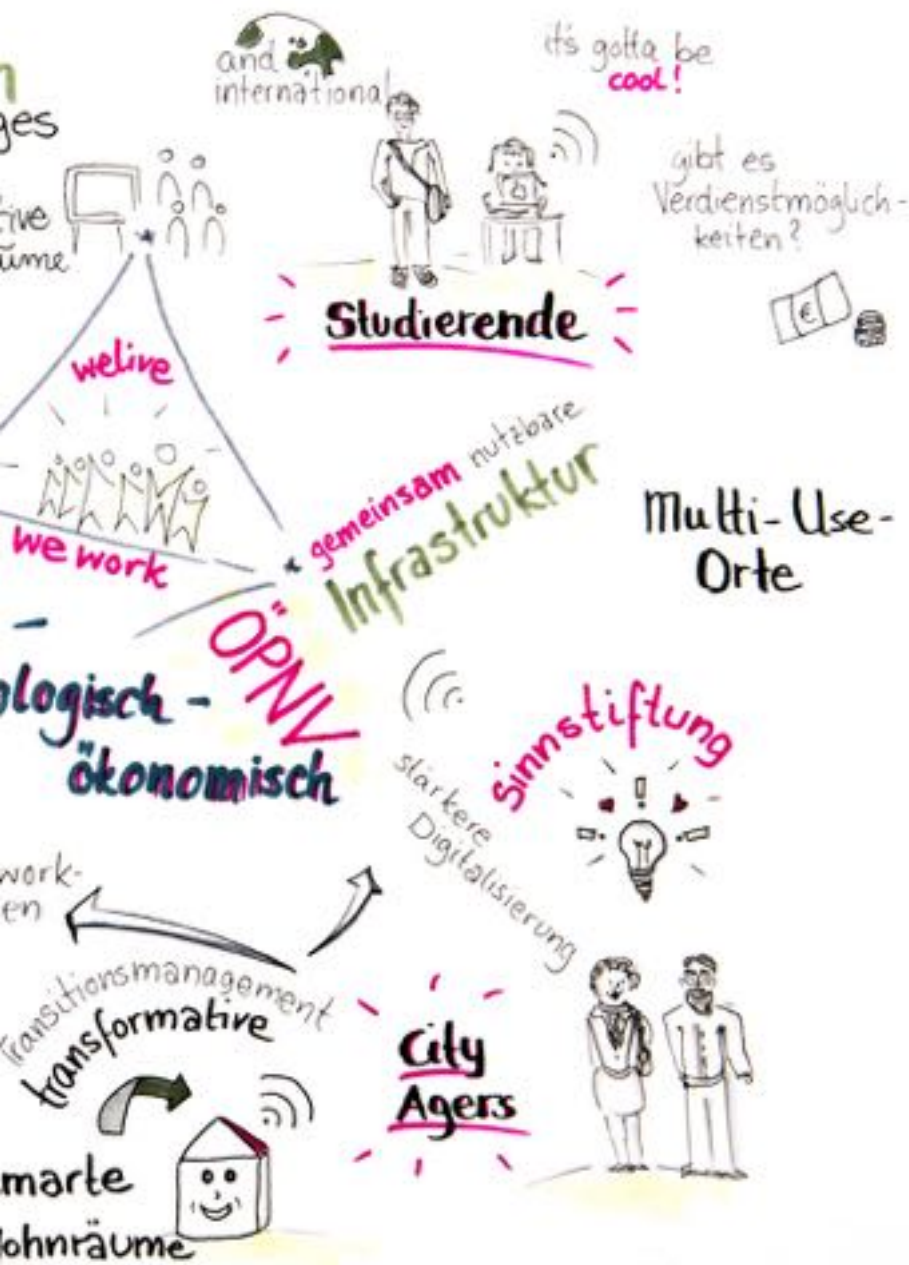 and
international
it's gotta be
cool!
gibt es
Verdienstmöglich-
keiten?
€
Studierende
welive
we work
gemeinsam nutzbare
Infrastruktur
Multi-Use-
Orte
ÖPNV
ologisch-
ökonomisch
stärkere
Digitalisierung
Sinnstiftung
work-
en
Transitionsmanagement
transformative
City
Agers
marte
ohnräume